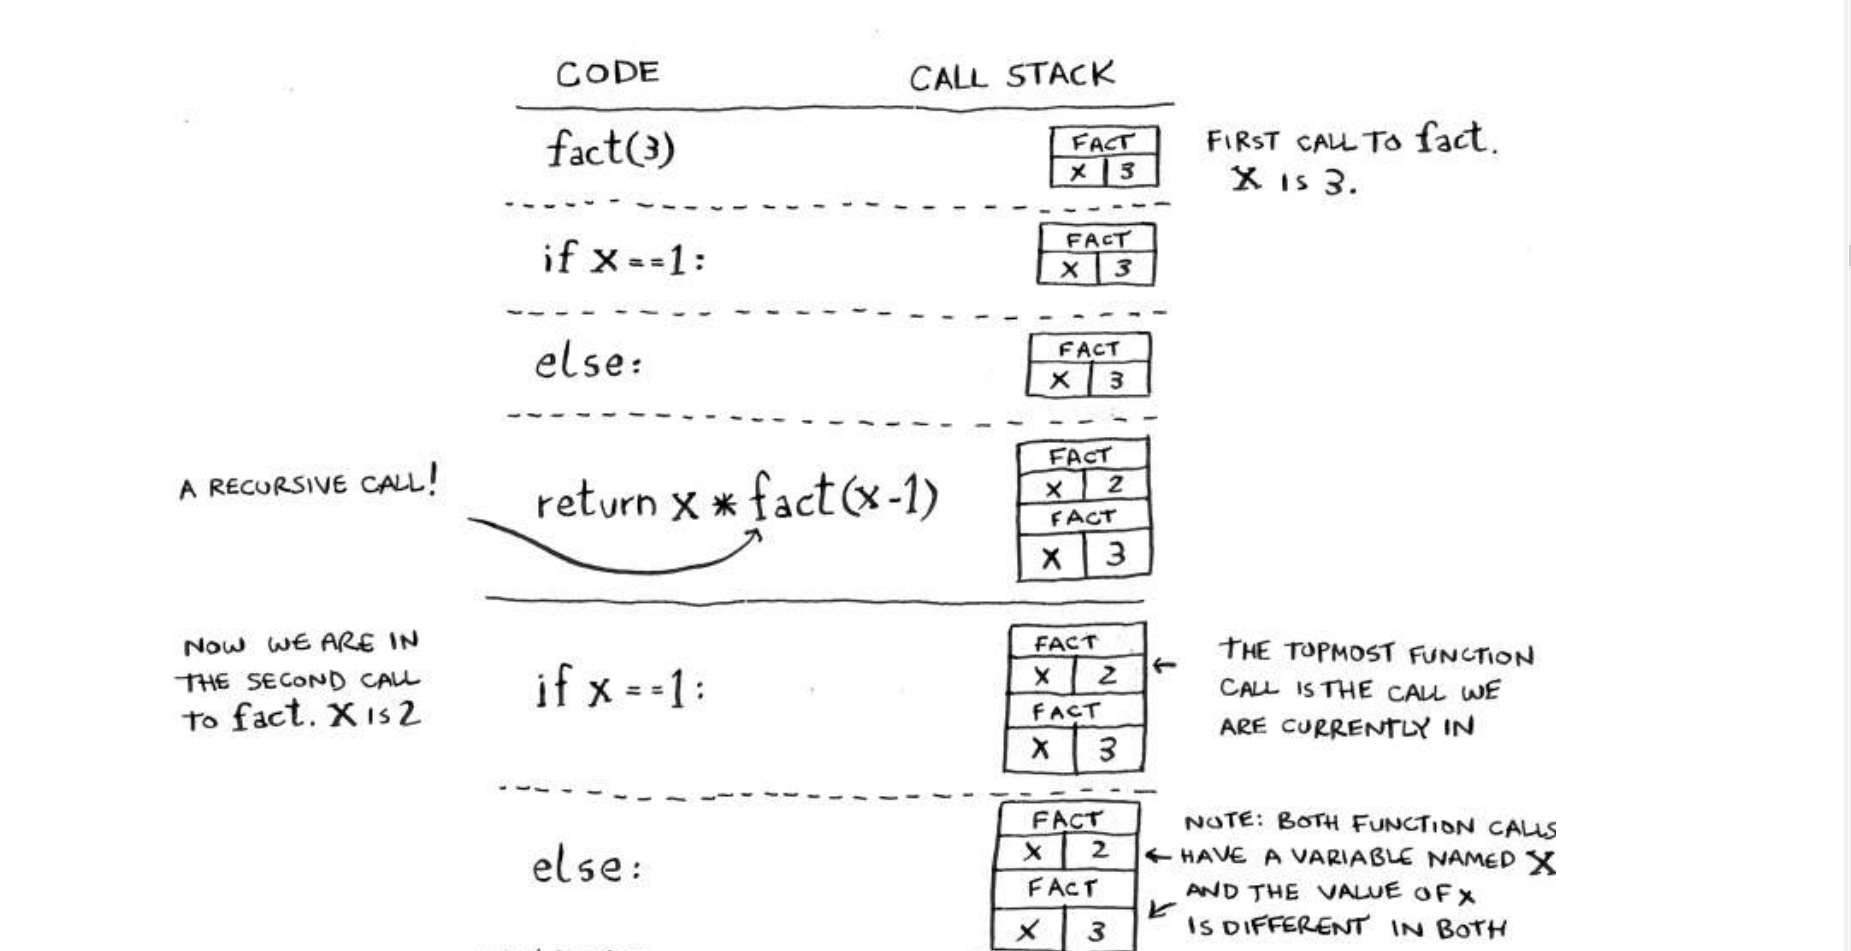 CODE CALL STACK
fact(3)
FACT
X 3
FIRST CALL TO fact.
X IS 3.
if x==1:
FACT
X 3
else:
FACT
X 3
A RECURSIVE CALL!
return x * fact(x-1)
FACT
X 2
FACT
X 3
NOW WE ARE IN
THE SECOND CALL
TO fact. X IS 2
if x==1:
FACT
X 2
FACT
X 3
THE TOPMOST FUNCTION
CALL IS THE CALL WE
ARE CURRENTLY IN
else:
FACT
X 2
FACT
X 3
NOTE: BOTH FUNCTION CALLS
HAVE A VARIABLE NAMED X
AND THE VALUE OF X
IS DIFFERENT IN BOTH